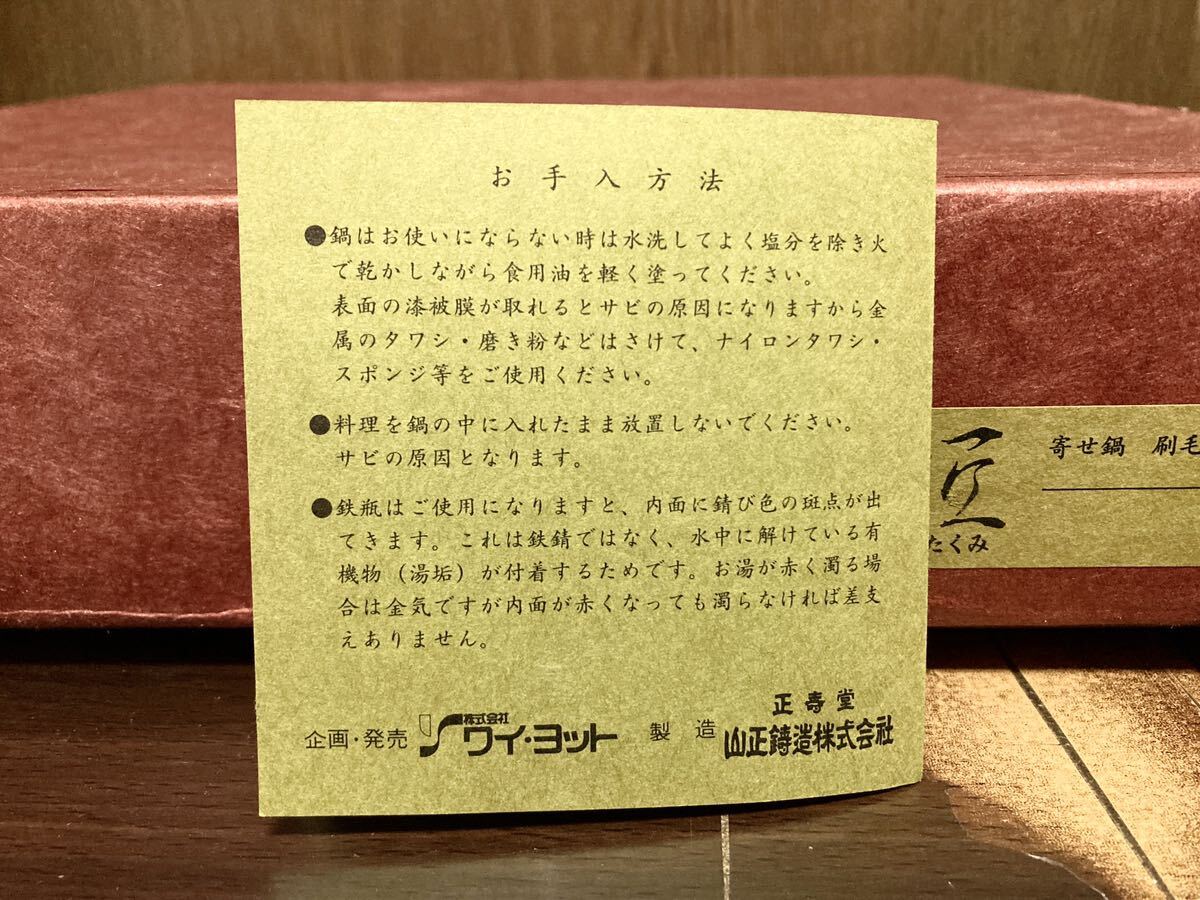 お手入方法
●鍋はお使いにならない時は水洗してよく塩分を除き火
で乾かしながら食用油を軽く塗ってください。
表面の漆被膜が取れるとサビの原因になりますから金
属のタワシ・磨き粉などはさけて、ナイロンタワシ・
スポンジ等をご使用ください。
●料理を鍋の中に入れたまま放置しないでください。
サビの原因となります。
●鉄瓶はご使用になりますと、内面に錆び色の斑点が出
てきます。これは鉄錆ではなく、水中に解けている有
機物（湯垢）が付着するためです。お湯が赤く濁る場
合は金気ですが内面が赤くなっても濁らなければ差支
えありません。
企画・発売 株式会社 ワイ・ヨット 製造 正寿堂 山正鋳造株式会社
匠
たくみ
寄せ鍋 刷毛